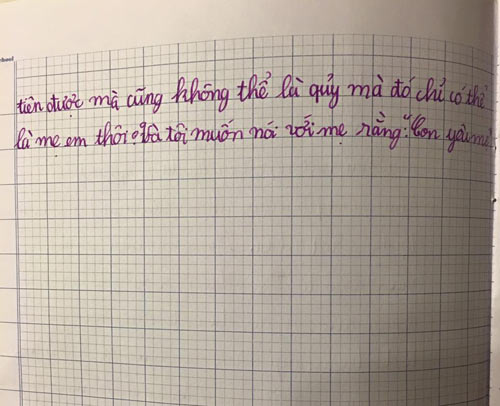 hool
tiên được mà cũng không thể là quỷ mà đó chỉ có thể
là mẹ em thôi. Và tôi muốn nói với mẹ rằng: "Con yêu mẹ